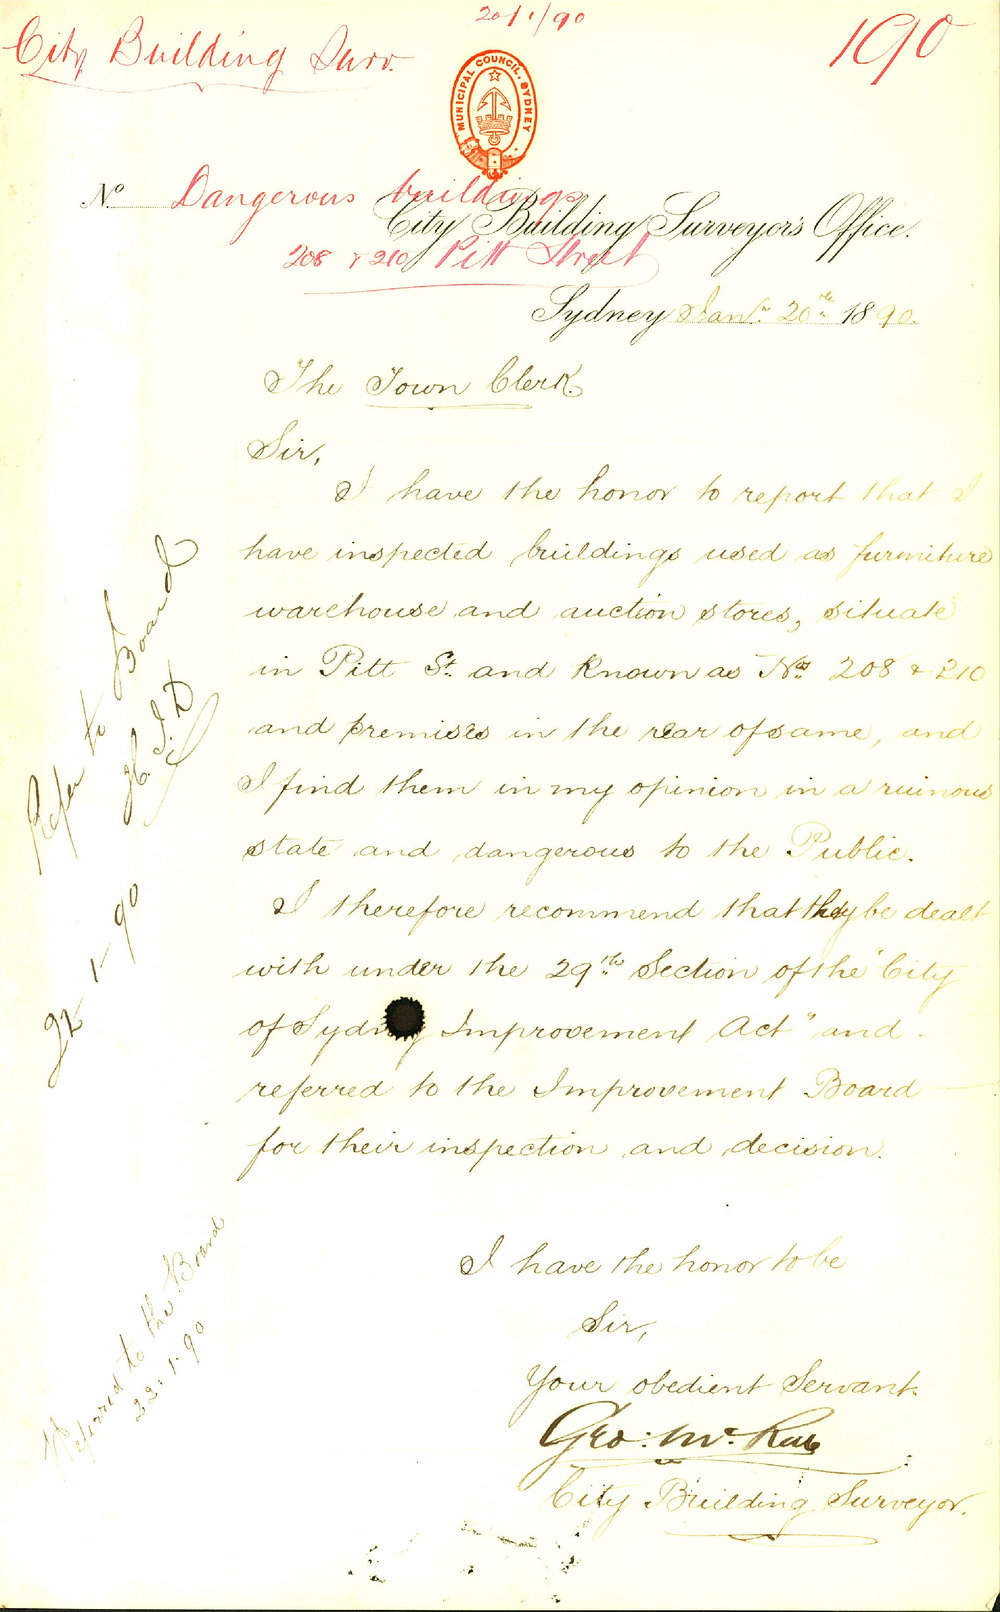 20/1/90
City Building Surv.
190
MUNICIPAL COUNCIL. SYDNEY
No
Dangerous buildings
City Building Surveyor's Office.
208 & 210 Pitt Street
Sydney Jany. 20th 1890.
The Town Clerk
Sir,
I have the honor to report that I
have inspected buildings used as furniture
warehouse and auction stores, situate
in Pitt St. and known as Nos. 208 & 210
and premises in the rear of same, and
I find them in my opinion in a ruinous
state and dangerous to the Public.
I therefore recommend that they be dealt
with under the 29th Section of the "City
of Sydney Improvement Act" and
referred to the Improvement Board
for their inspection and decision.
I have the honor to be
Sir,
Your obedient Servant.
Geo: McRae
City Building Surveyor.
Refer to Board
22-1-90
Referred to the Board
22.1.90